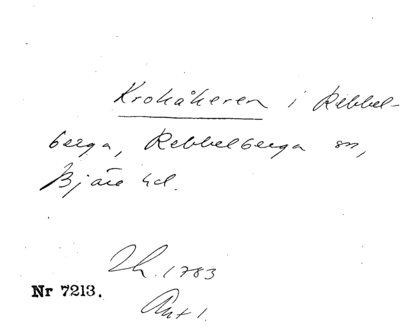 Krokåkeren i Rebbel-
berga, Rebbelberga sn,
Bjäre hd.
Lh. 1783
Nr 7213.
Akt 1.